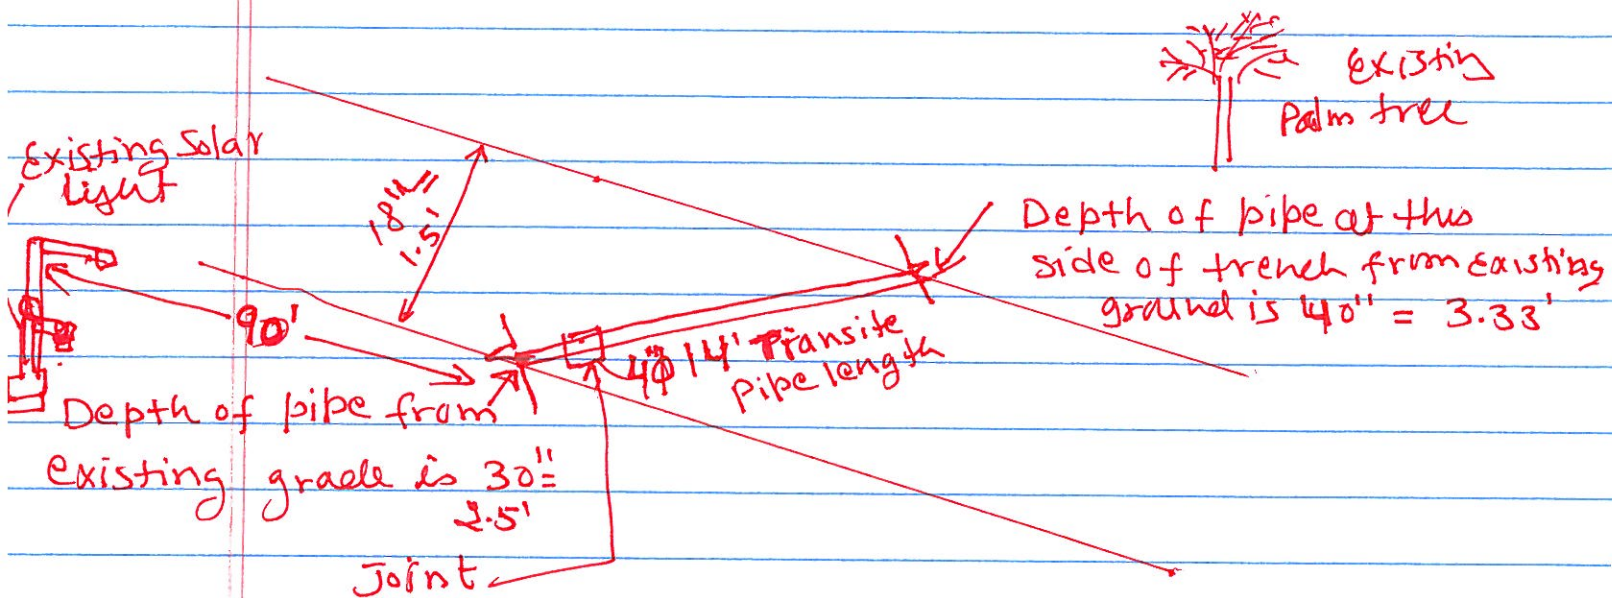 Existing
Palm tree
Existing Solar
light
18"
1.5'
Depth of pipe at this
side of trench from existing
ground is 40" = 3.33'
90'
4"ϕ 14' Transite
pipe length
Depth of pipe from
existing grade is 30"=
2.5'
Joint